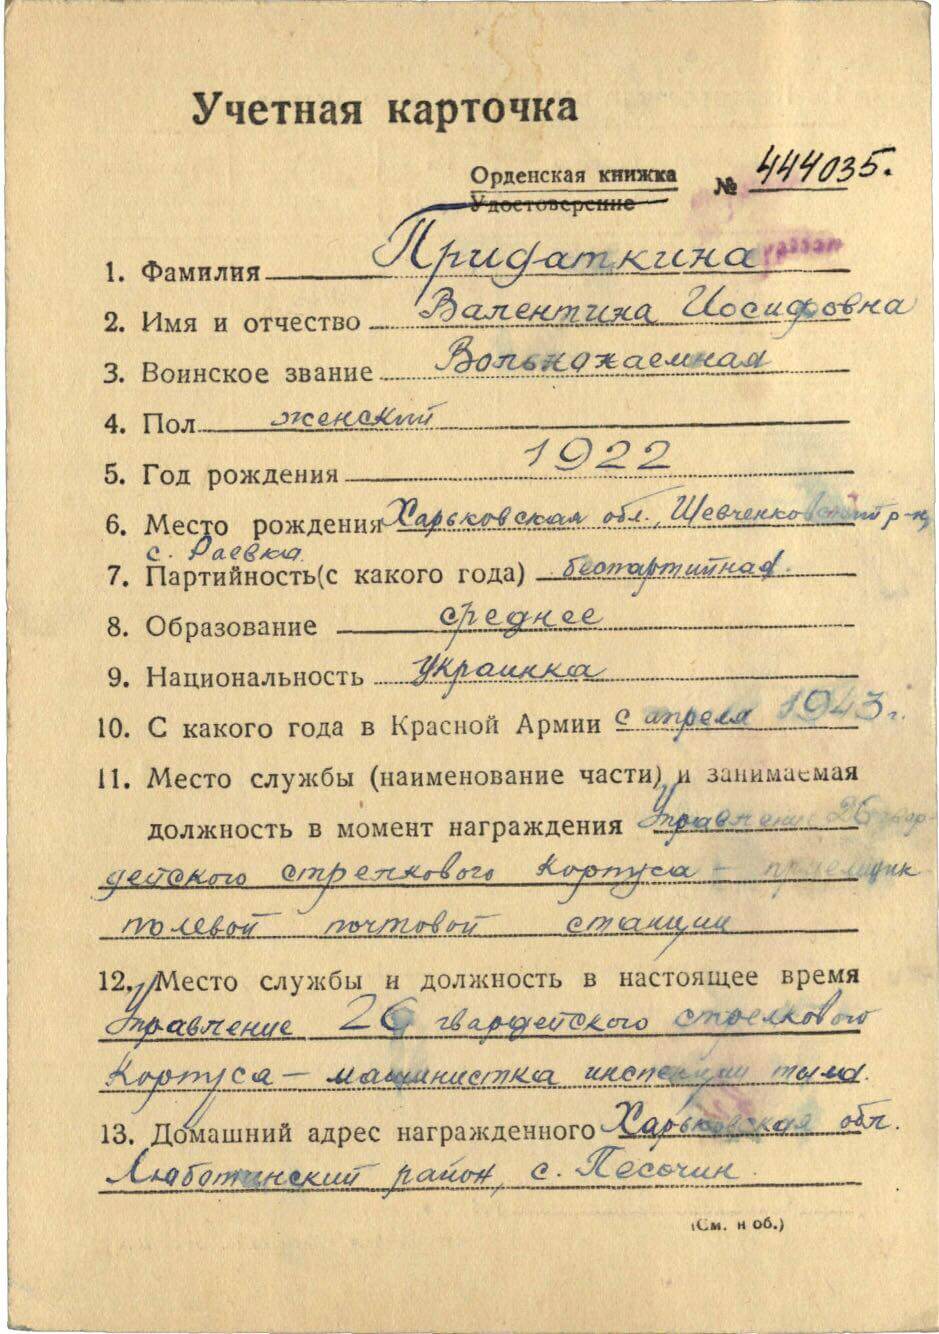 Учетная карточка
Орденская книжка
Удостоверение
№ 444035.
1. Фамилия Придаткина
2. Имя и отчество Валентина Иосифовна
3. Воинское звание Вольнонаемная
4. Пол женский
5. Год рождения 1922
6. Место рождения Харьковская обл., Шевченковский р-н,
с. Раевка.
7. Партийность(с какого года) беспартийная.
8. Образование среднее
9. Национальность украинка
10. С какого года в Красной Армии с апреля 1943 г.
11. Место службы (наименование части) и занимаемая
должность в момент награждения Управление 26 гвар-
дейского стрелкового корпуса – приемщик
полевой почтовой станции
12. Место службы и должность в настоящее время
Управление 26 гвардейского стрелкового
корпуса – машинистка инспекции тыла.
13. Домашний адрес награжденного Харьковская обл.
Люботинский район, с. Песочин.
(См. н об.)